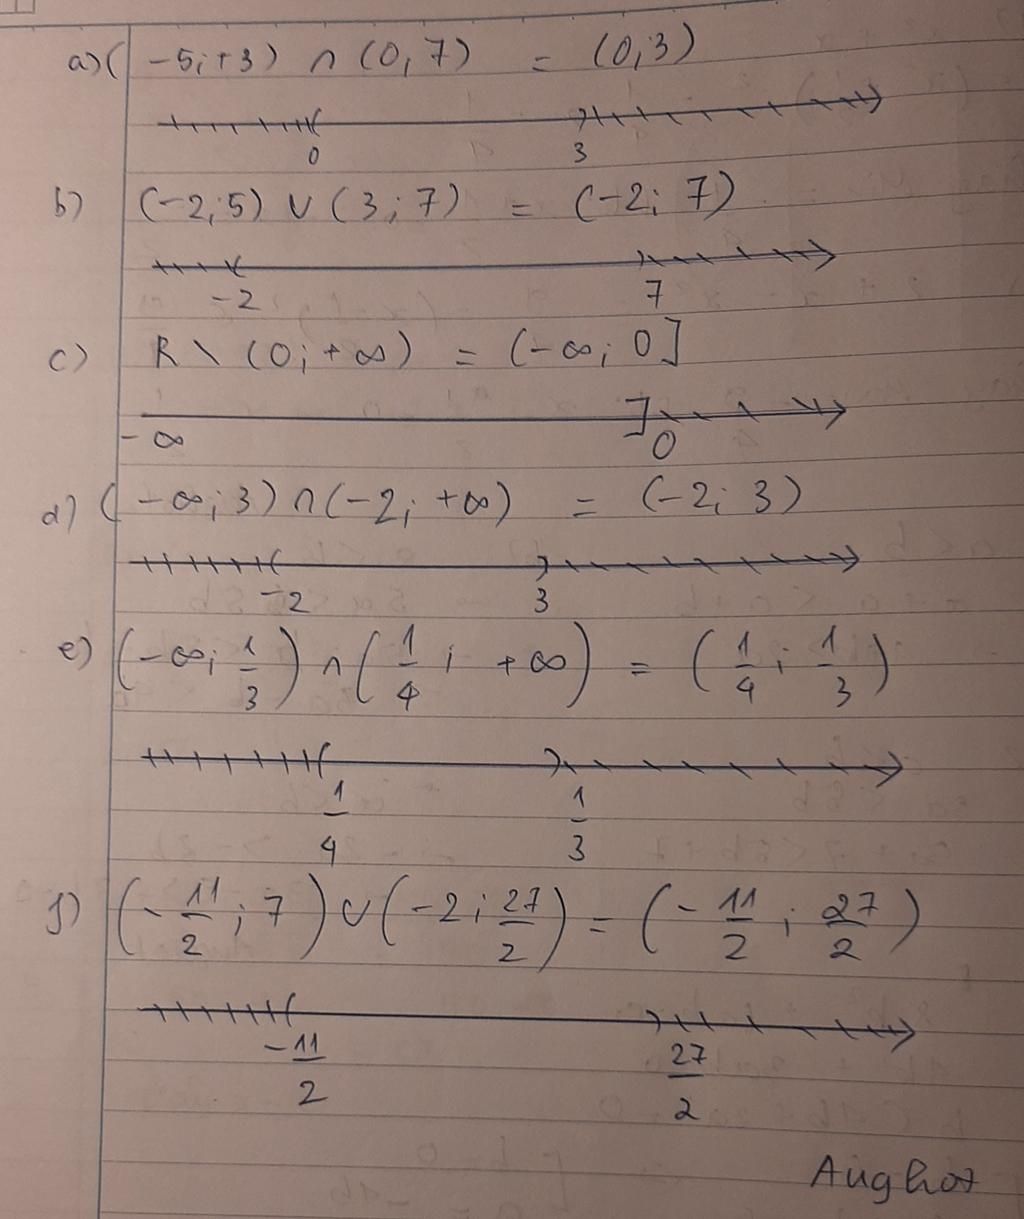 a) (-5;+3) ∩ (0,7) = (0;3)
0 3
b) (-2;5) ∪ (3;7) = (-2;7)
-2 7
c) R \ (0;+∞) = (-∞;0]
-∞ 0
d) (-∞;3) ∩ (-2;+∞) = (-2;3)
-2 3
e) (-∞; 1/3) ∩ (1/4; +∞) = (1/4; 1/3)
1/4 1/3
f) (-11/2; 7) ∪ (-2; 27/2) = (-11/2; 27/2)
-11/2 27/2